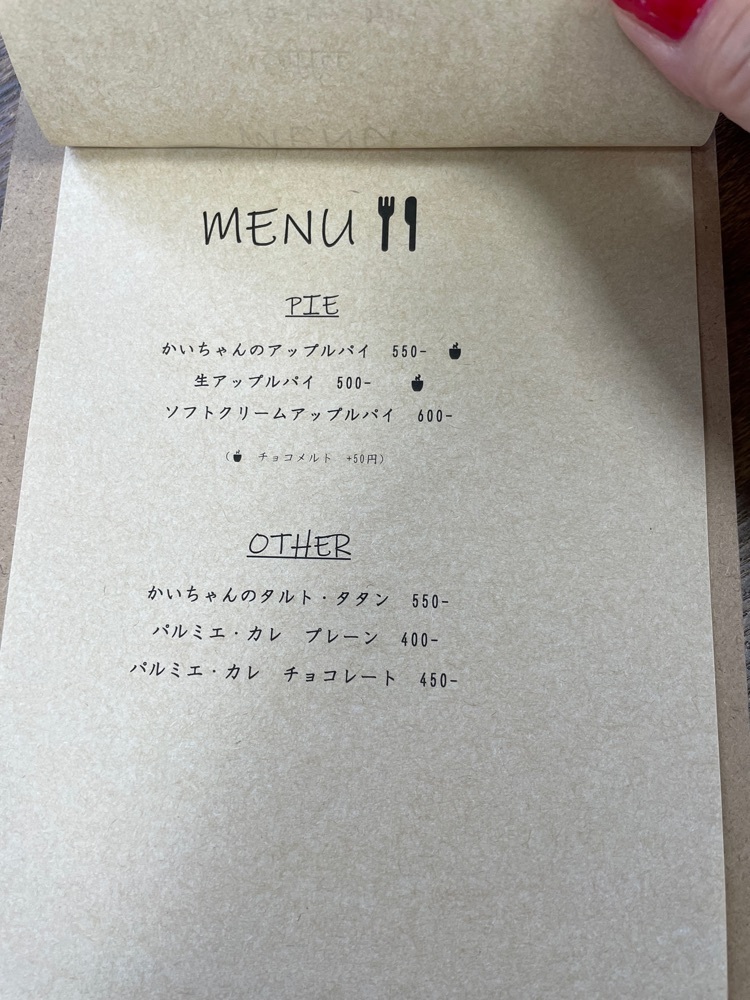 MENU
PIE
かいちゃんのアップルパイ 550-
生アップルパイ 500-
ソフトクリームアップルパイ 600-
( チョコメルト +50円)
OTHER
かいちゃんのタルト・タタン 550-
パルミエ・カレ プレーン 400-
パルミエ・カレ チョコレート 450-